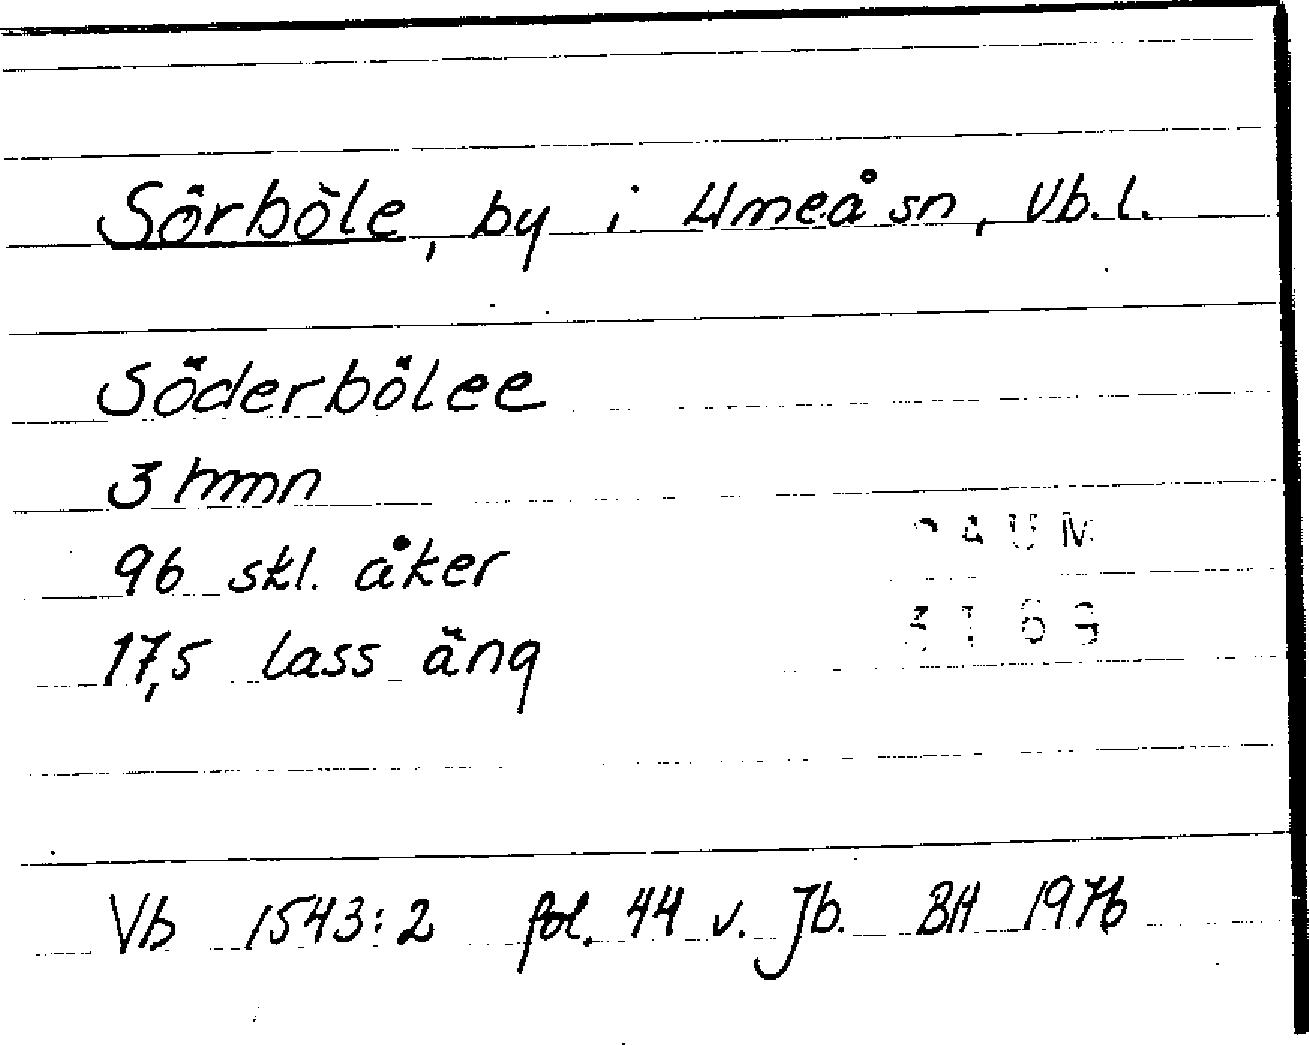 Sörböle, by i Umeå sn, Vb.l.
Söderbölee
3 hmn
96 skl. åker
17,5 lass äng
Vb 1543:2 fol. 44 v. Jb. BH 1976